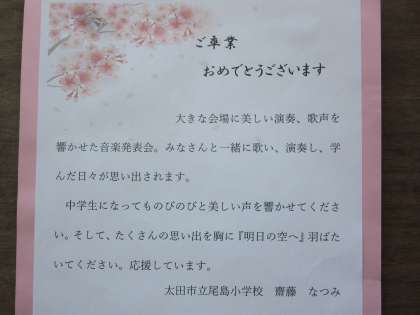 ご卒業
おめでとうございます
大きな会場に美しい演奏、歌声を
響かせた音楽発表会。みなさんと一緒に歌い、演奏し、学
んだ日々が思い出されます。
中学生になってものびのびと美しい声を響かせてくださ
い。そして、たくさんの思い出を胸に『明日の空へ』羽ばた
いてください。応援しています。
太田市立尾島小学校　齋藤　なつみ